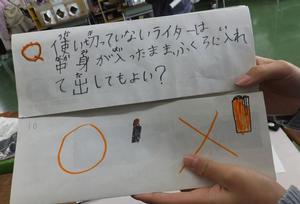 Q 使い切っていないライターは
中身が入ったまま、ふくろに入れ
て出してもよい？
10
○ ×